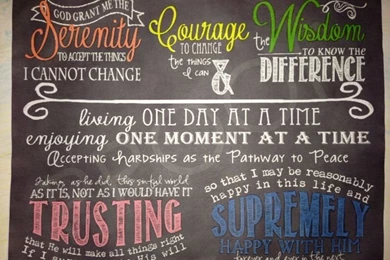 GOD GRANT ME THE
Serenity
TO ACCEPT THE THINGS
I CANNOT CHANGE
Courage
TO CHANGE
the THINGS
I can
&
the Wisdom
TO KNOW THE
DIFFERENCE
living ONE DAY AT A TIME
enjoying ONE MOMENT AT A TIME
Accepting hardships as the Pathway to Peace
Taking, as he did, this sinful world
AS IT IS, NOT AS I WOULD HAVE IT
TRUSTING
that He will make all things right
If I surrender to His will
so that I may be reasonably
happy in this life and
SUPREMELY
HAPPY WITH HIM
forever and ever in the next